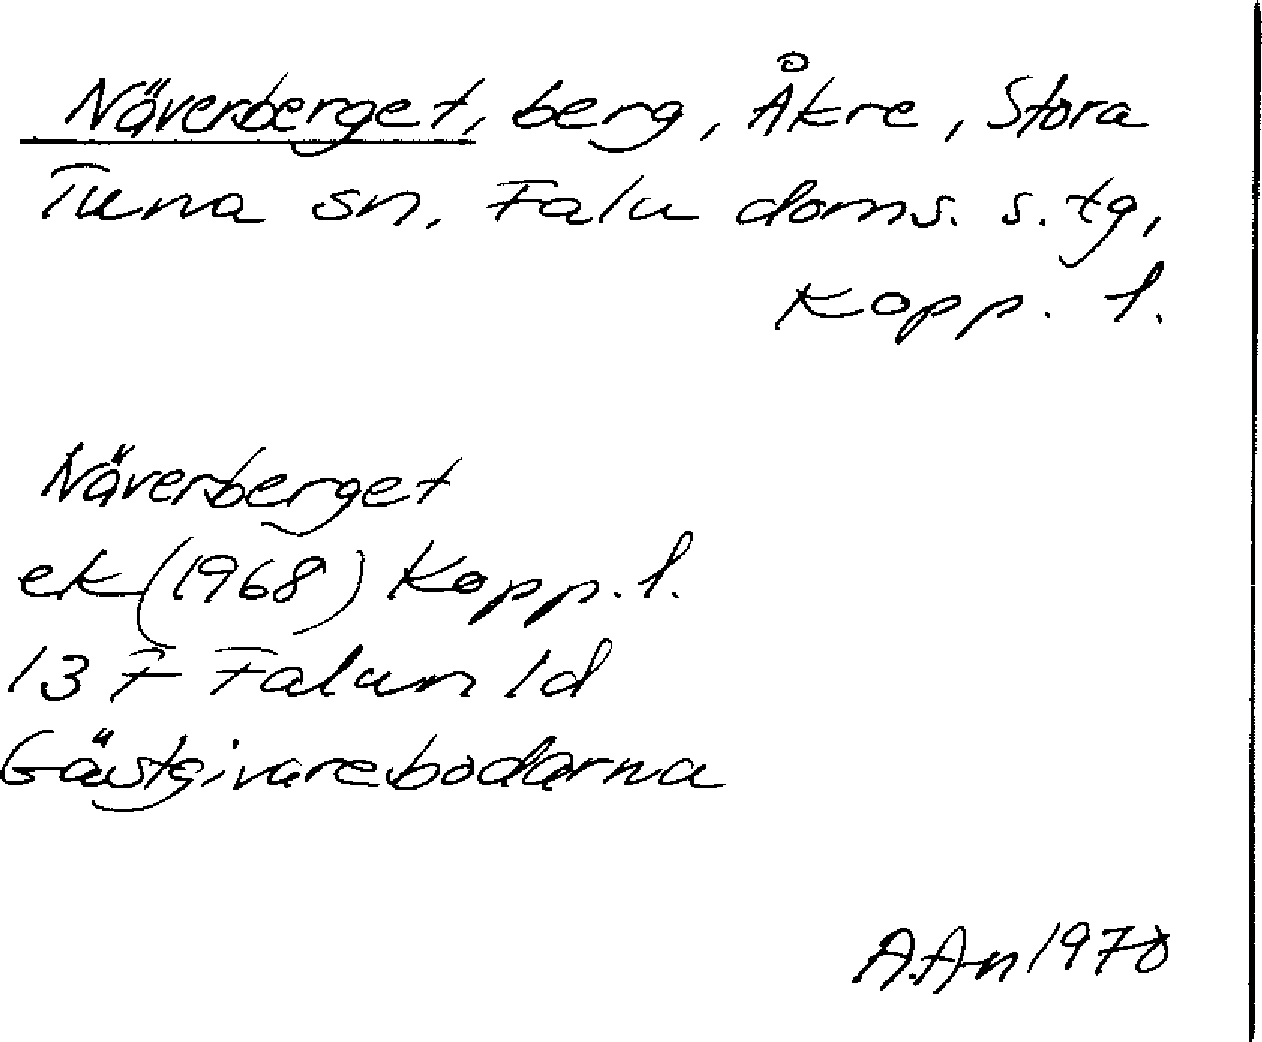 Näverberget, berg, Åkre, Stora
Tuna sn, Falu doms. s. tg,
Kopp. l.
Näverberget
ek (1968) Kopp. l.
13 F Falun 1d
Gästgivarebodarna
A.An 1970